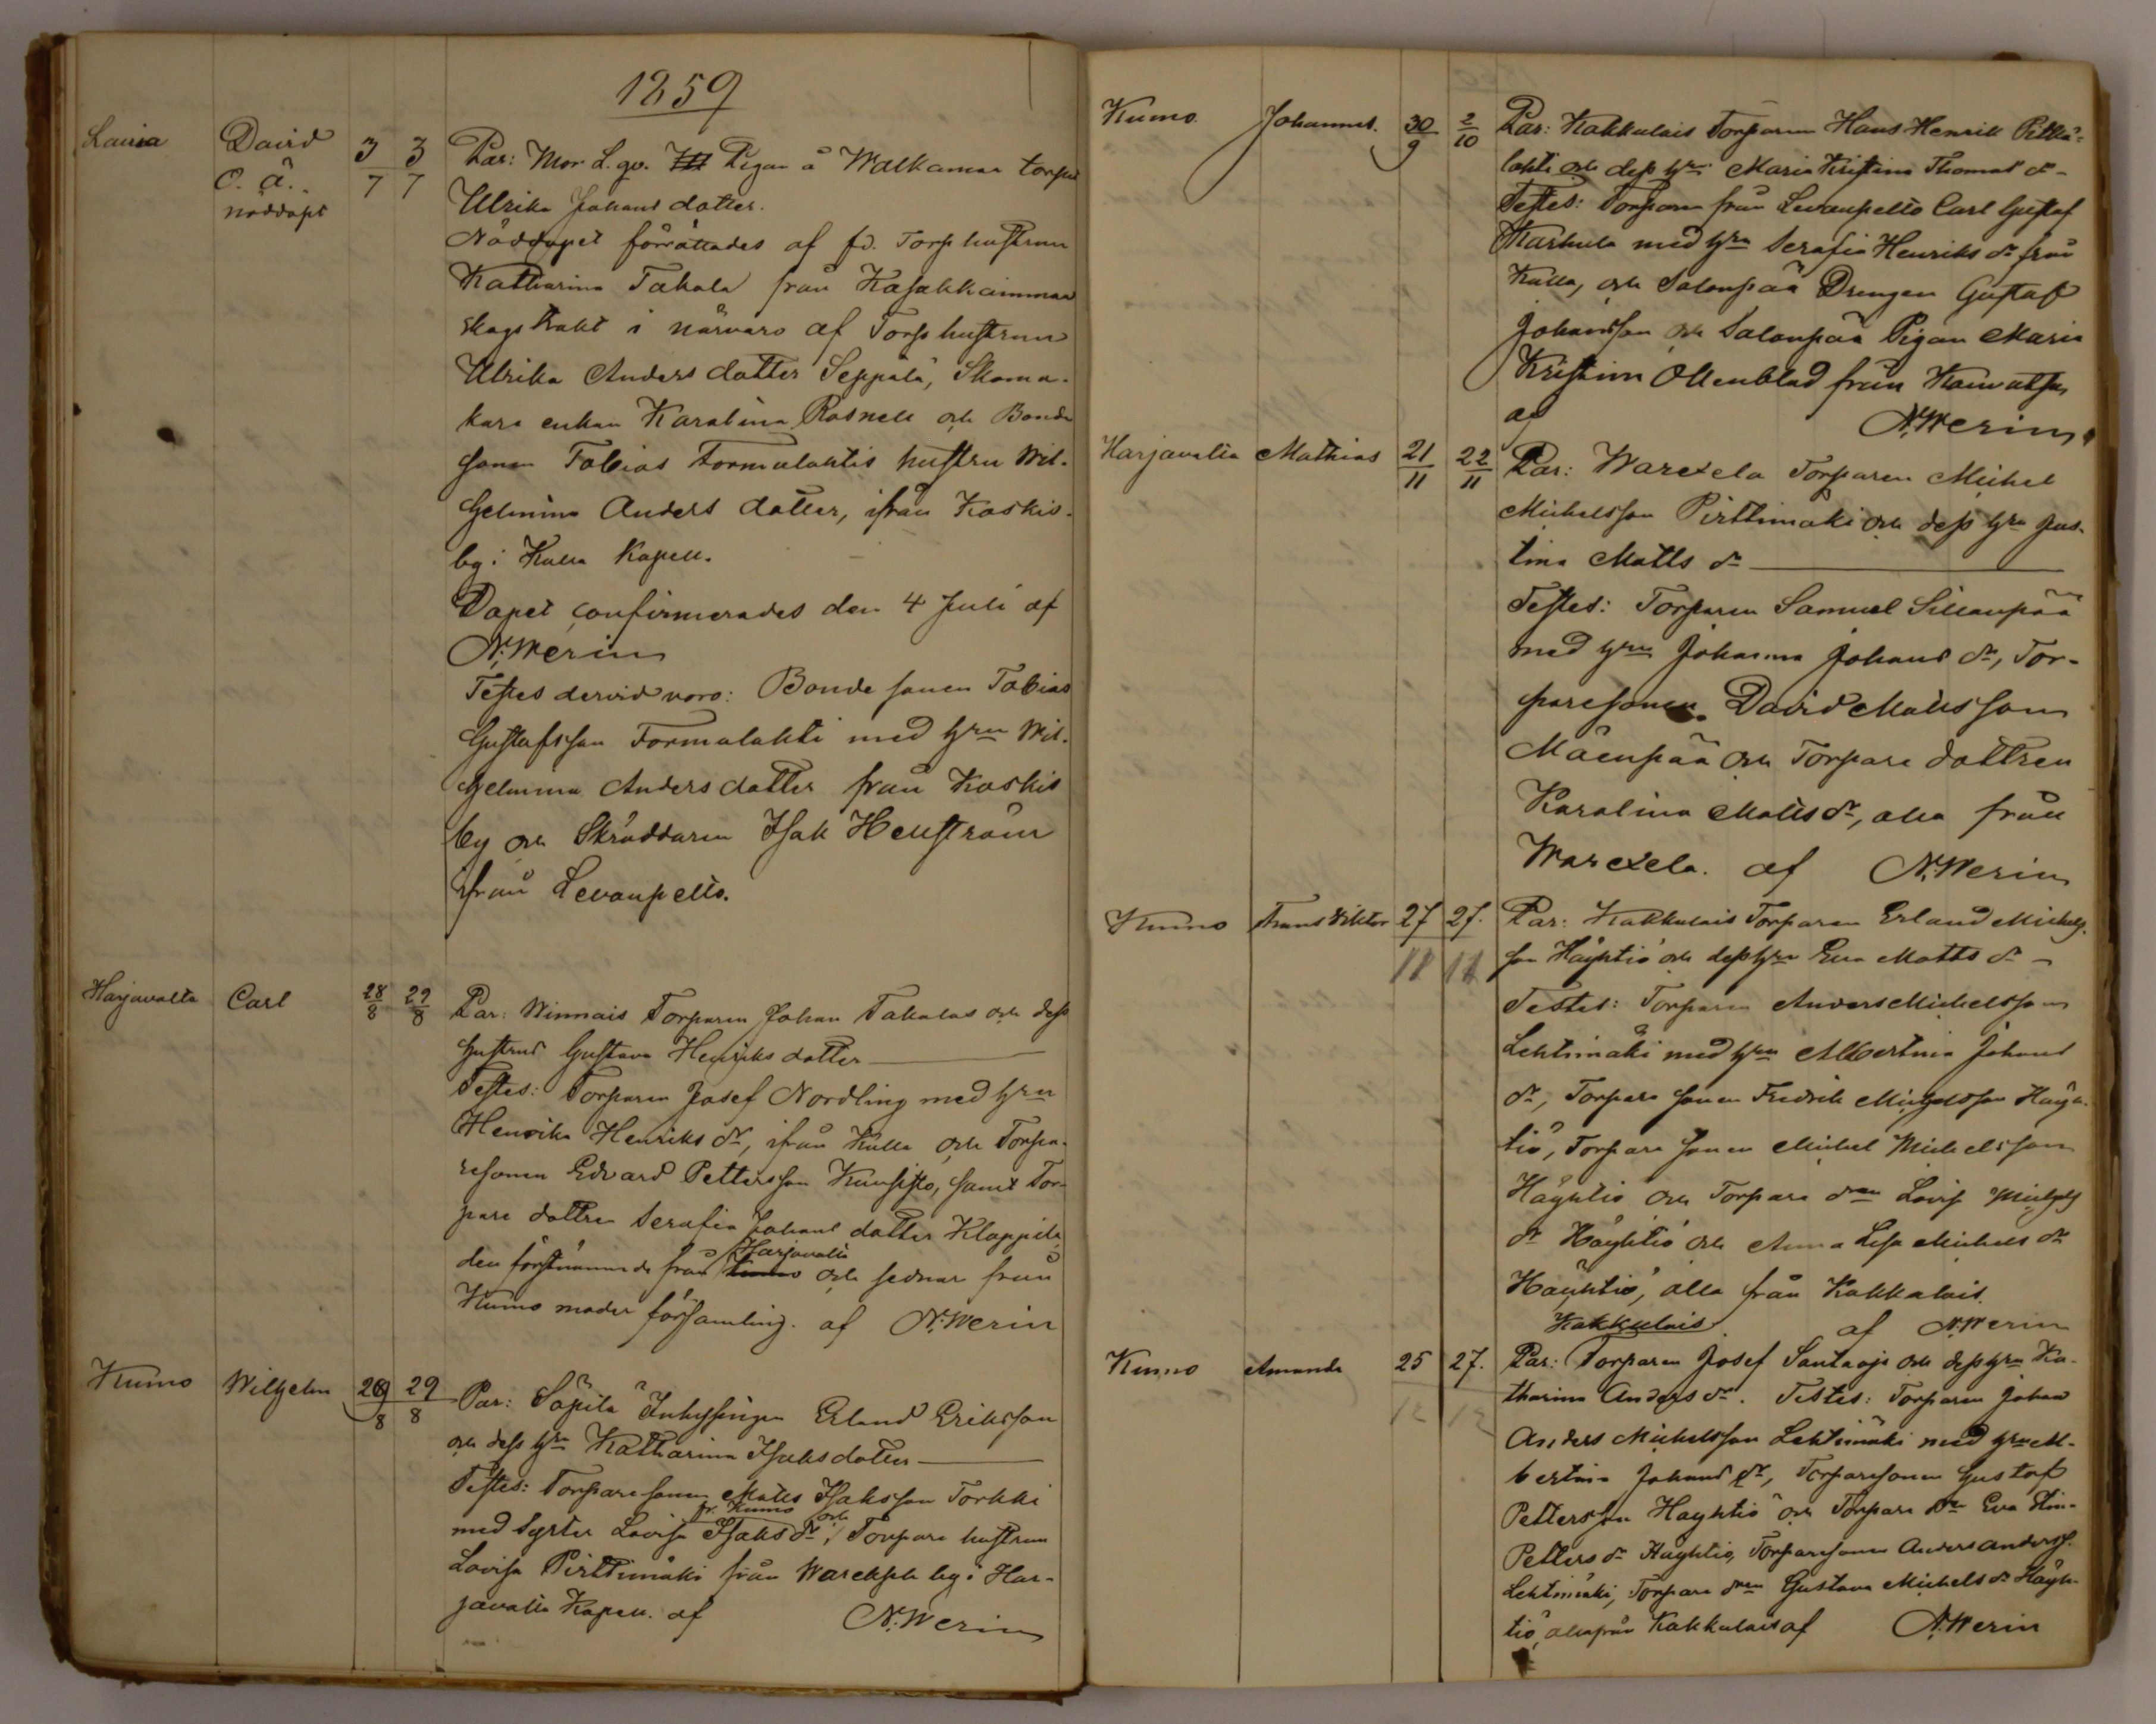 1859
Lavia David 3/7 3/7 Par: Mor L. qv. Pigan å Walkaman torpet
O. ä. Ulrika Johans dotter.
nöddöpt
Nöddopet förrättades af fd. Torp hustrun
Katharina Takala från Kasakkaimmaa
skogstrakt i närvaro af Torp hustrun
Ulrika Anders dotter Seppälä, Skoma-
kare enkan Karolina Rosnell och Bonde
sonen Tobias Formulahtis hustru Wil-
helmina Anders dotter, ifrån Koskis-
by i Kulla Kapell.
Dopet confirmerades den 4 Juli af
N. Werin
Testes dervid voro: Bonde sonen Tobias
Gustafsson Formalahti med hru Wil-
helmina Anders dotter från Koskis
by och Skräddaren Isak Hellström
ifrån Levanpelto.
Harjavalta Carl 28/8 29/8 Par: Winnais Torparen Johan Takalas och dess
hustrus Gustava Henriks dotter
Testes: Torparen Josef Nordling med hru
Henrika Henriks dr, ifrån Kulla och Torpa-
resonen Edvard Pettersson Kuusisto, samt Tor-
pare dottren Serafia Johans dotter Klappila
den förstnämnde från Kumo Harjavalta och sednare från
Kumo moder församling. af N. Werin
Kumo Wilhelm 28/8 29/8 Par: Säpilä Inhysingen Erland Eriksson
och dess hru Katharina Isaks dotter
Testes: Torpare sonen Matts Isaksson Torkki
med syster Lovisa Isaks dr fr. Kumo och, Torpare hustrun
Lovisa Pirttimäki från Warekselä by i Har-
javalta Kapell. af N. Werin
Kumo Johannes. 30/9 2/10 Par: Kakkulais Torparen Hans Henrik Pitkä-
lahti och dess hru Maria Kristina Thomas dr
Testes: Torparen från Levanpelto Carl Gustaf
Markula med hru Serafia Henriks dr från
Kulla, och Salonpää Drengen Gustaf
Johansson och Salonpää Pigan Maria
Kristina Ollenblad från Kauvatsa
af N. Werin
Harjavalta Mathias 21/11 22/11 Par: Warexela Torparen Michel
Michelsson Pirttimäki och dess hru Jus-
tina Matts dr
Testes: Torparen Samuel Sillanpää
med hru Johanna Johans dr, Tor-
paresonen David Matsson
Mäenpää och Torpare dottren
Karolina Matts dr, alla från
Warexela. af N. Werin
Kumo Frans Viktor 27/11 27./11 Par: Kakkulais Torparen Erland Michels-
son Häyhtiö och dess hru Eva Matts dr
Testes: Torparen Anders Michelsson
Lehtimäki med hru Albertina Johans
dr, Torpare sonen Fredrik Michelsson Häyh-
tiö, Torpare sonen Michel Michelsson
Häyhtiö och Torpare dren Lovisa Michels
dr Häyhtiö och Anna Lisa Michels dr
Häyhtiö, alla från Kakkulais.
af N. Werin
Kumo Amanda 25/12 27./12 Par: Kakkulais Torparen Josef Santaoja och dess hru Ka-
tharina Anders dr. Testes: Torparen Johan
Anders Michelsson Lehtimäki med hru Al-
bertina Johans dr, Torparesonen Gustaf
Pettersson Häyhtiö och Torpare dr Eva Stina
Petters dr Häyhtiö, Torparesonen Anders Anderss.
Lehtimäki, Torpare dren Gustava Michels dr Häyh-
tiö, alla från Kakkulais af N. Werin